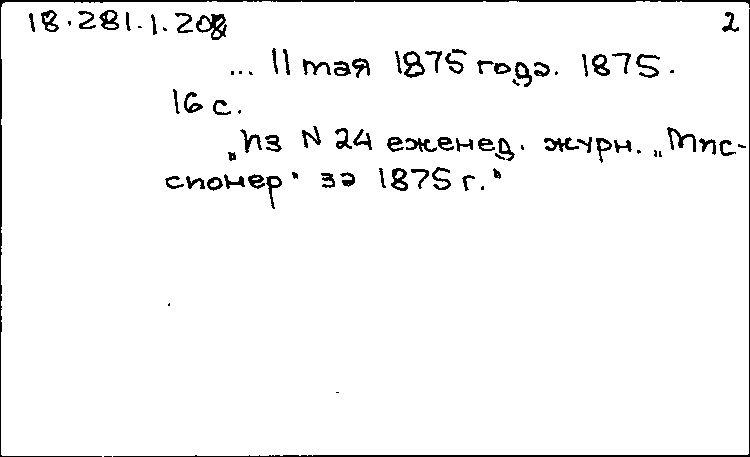 18.281.1.208 2
... 11 мая 1875 года. 1875.
16 с.
„Из N 24 еженед. журн. „Мис-
сионер" за 1875 г."